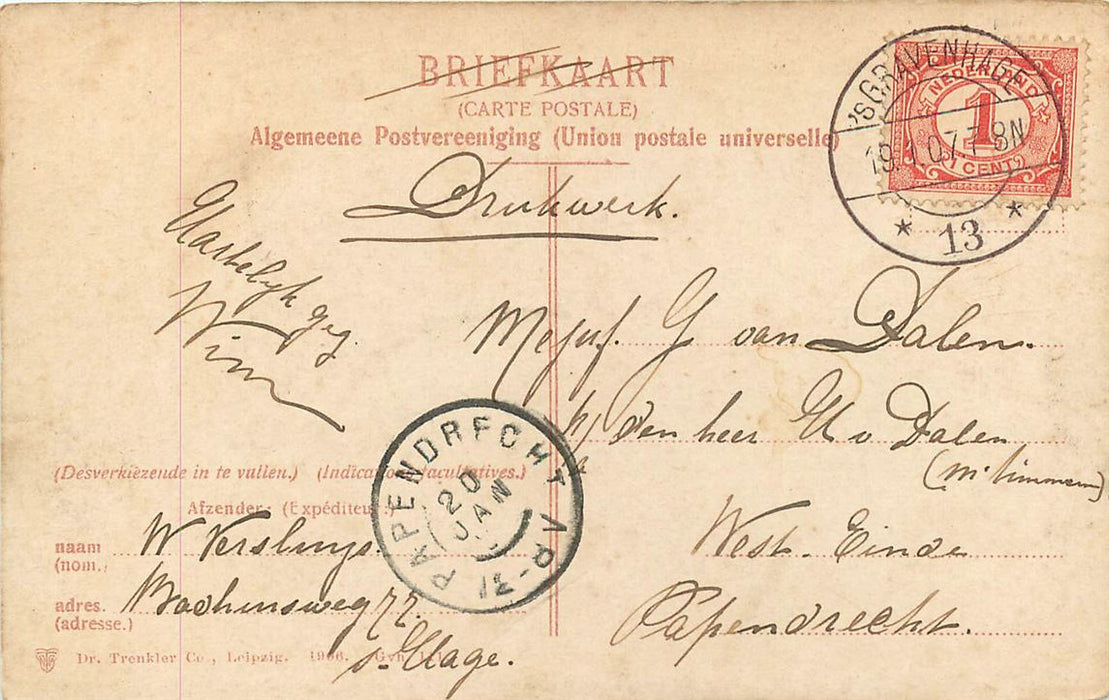 BRIEFKAART
(CARTE POSTALE)
Algemeene Postvereeniging (Union postale universelle)
'SGRAVENHAGE
19.1.07.7-8N
* 13 *
NEDERLAND
1
(1 CENT)
Drukwerk.
Hartelijk geg
Wim
Mejuf. G van Dalen.
p/a den heer H v Dalen
(Mr timmerm)
West-Einde
Papendrecht.
PAPENDRECHT
20 JAN
(Desverkiezende in te vullen.) (Indications facultatives.)
Afzender: (Expéditeur:)
naam W Versluys.
(nom.)
adres. 77.
(adresse.)
s-Hage.
Dr. Trenkler Co., Leipzig. 1906. Gvh